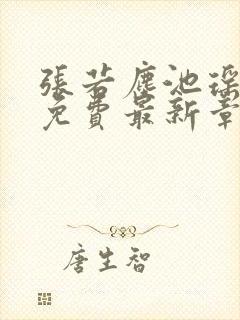 張若塵池瑤
免費最新章
唐生智